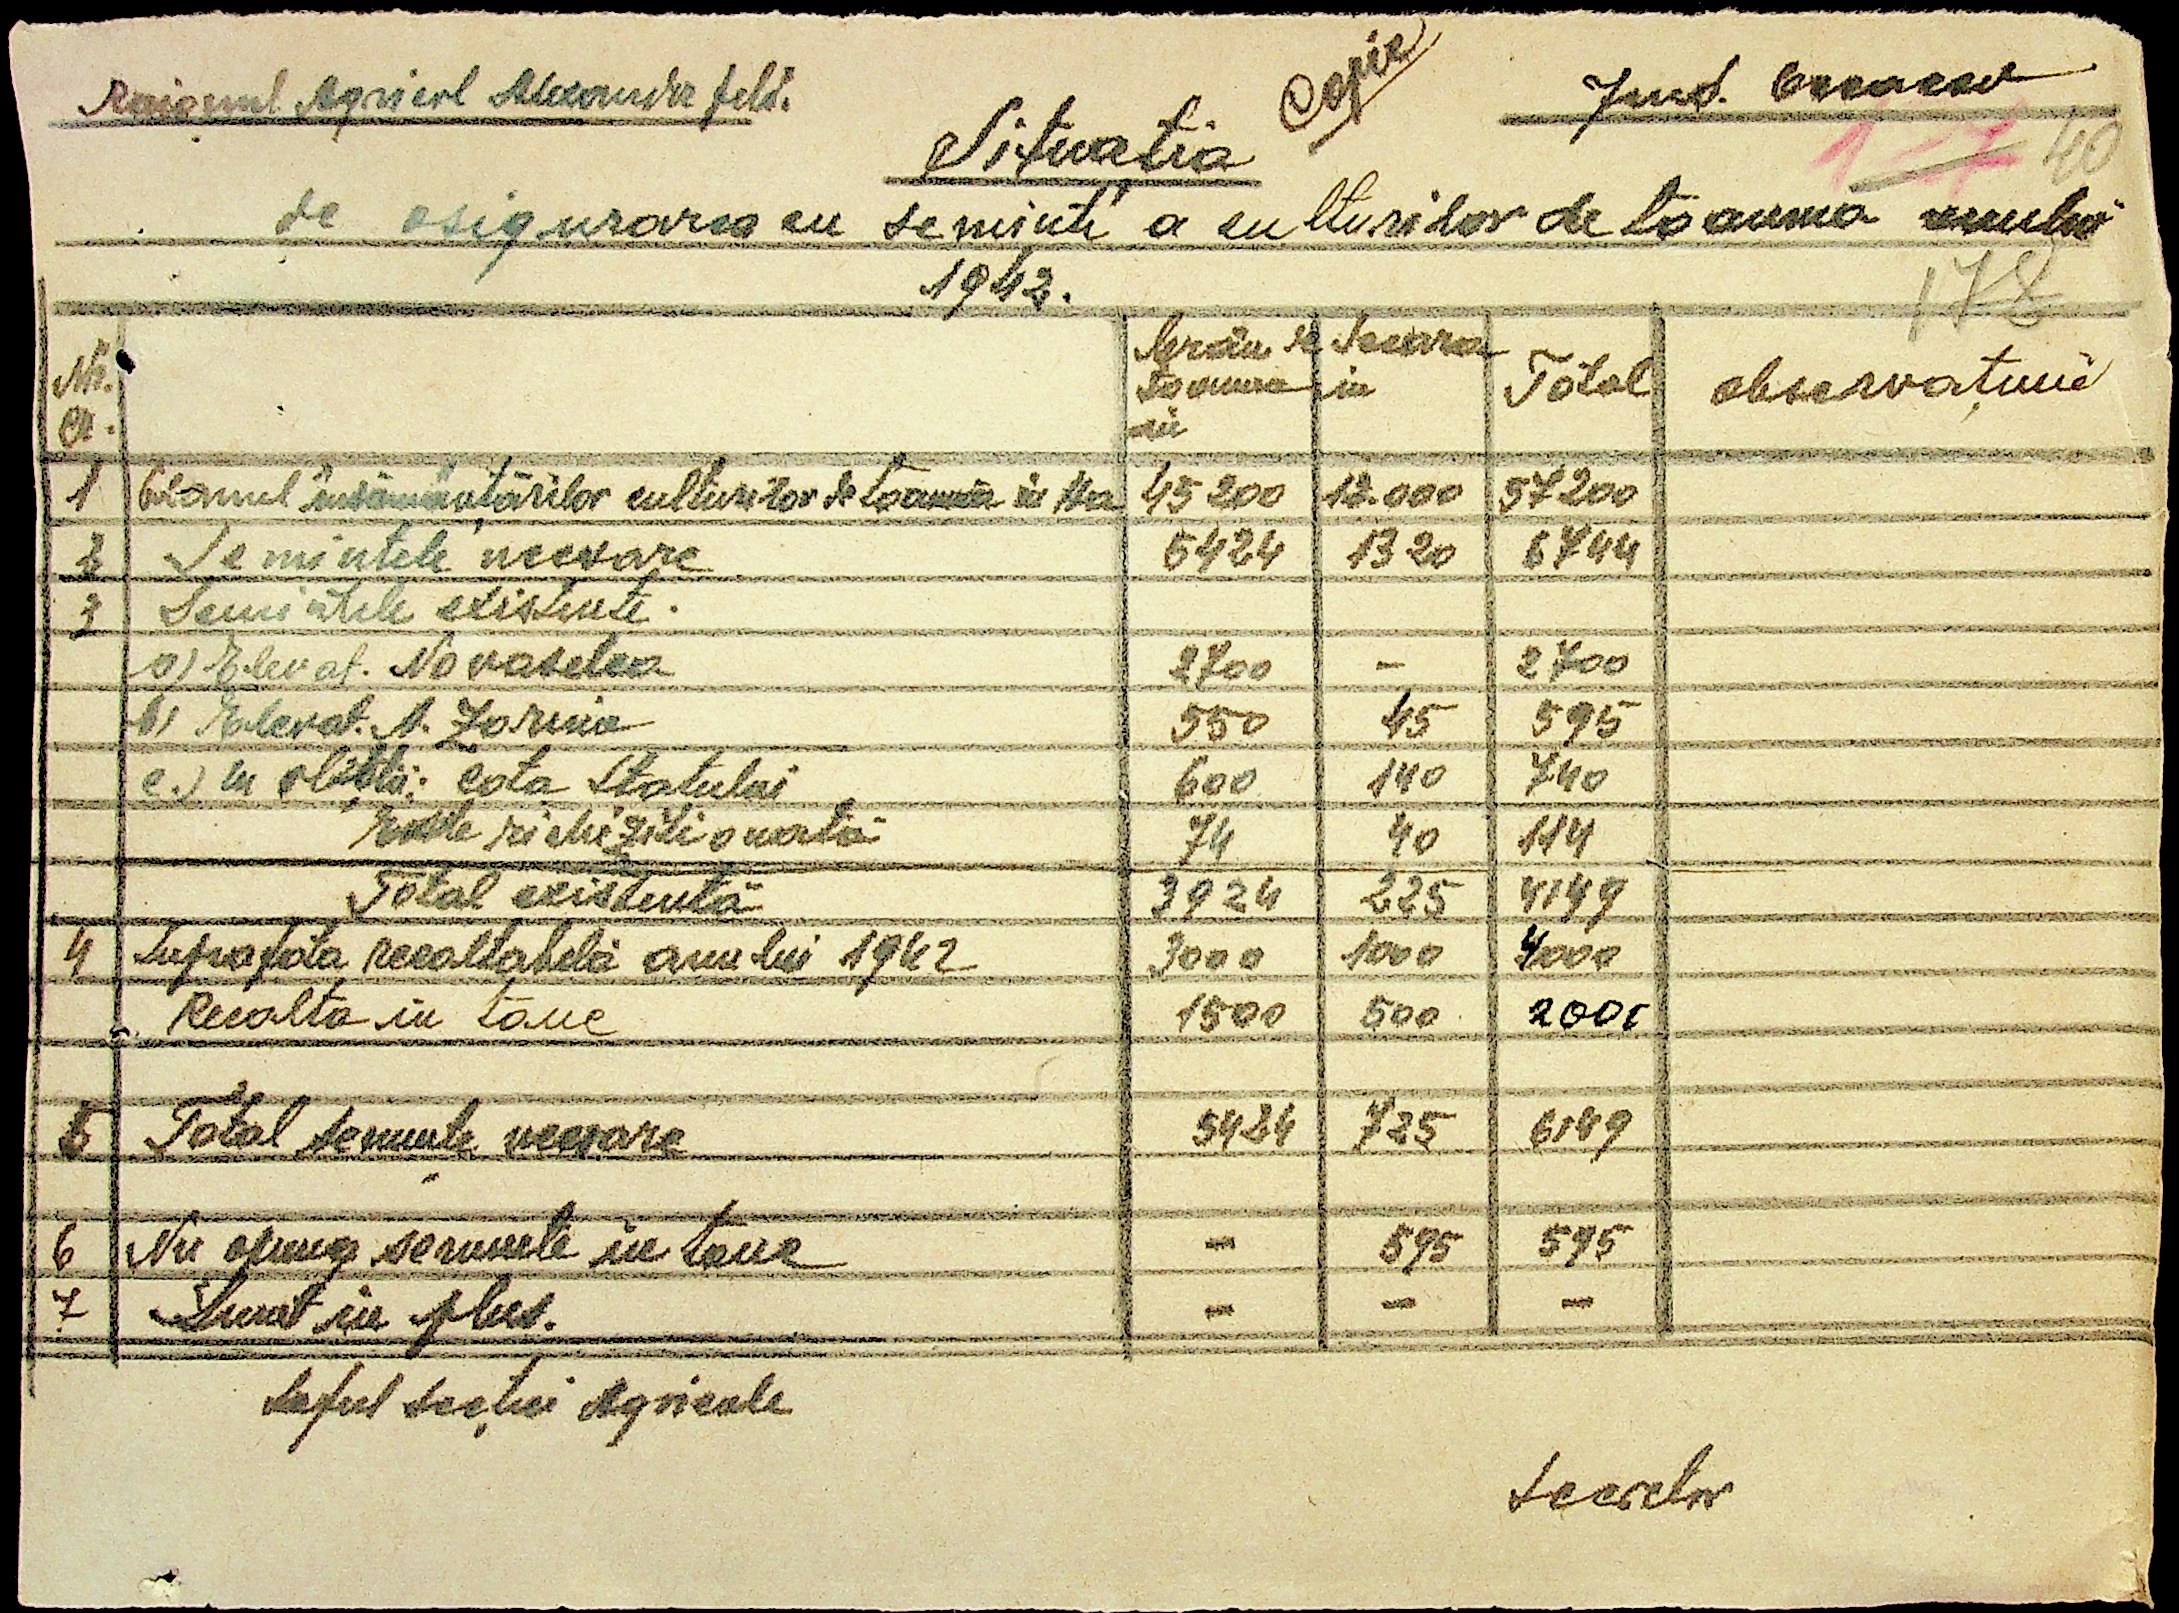 Raionul Agricol Alexanderfeld.
Copie
Jud. Oceacov
127 40
Situatia
de asigurarea cu seminte a culturilor de toamna anului
1942.
178
Nr. Cr. Grâu de toamna in Secara in Total observațiuni
1 Planul însămânțărilor culturilor de toamna in Ha 45200 12.000 57200
2 Semintele necesare 5424 1320 6744
3 Semintele existente.
a) Elevat. Novaselca 2700 - 2700
b) Elevat. A. Zorina 550 45 595
c.) in : Cota Statului 600 140 740
Este richizitionată 74 40 114
Total existentă 3924 225 4149
4 Suprafata recoltabilă anului 1942 3000 1000 4000
Recolta in tone 1500 500 2000
5 Total seminte necesare 5424 725 6149
6 Nu ajung seminte in tone - 595 595
7 Sunt in plus. - - -
Seful secției Agricole
Secretar